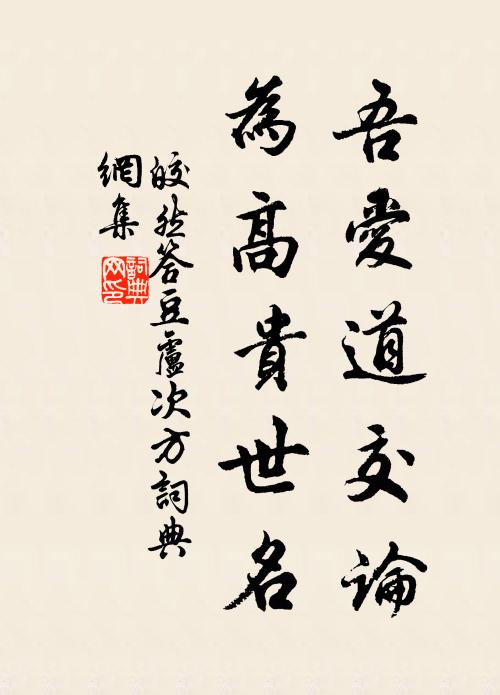 吾愛道交論
為高貴世名
皎然答豆盧次方詞典
網集
詞典網印